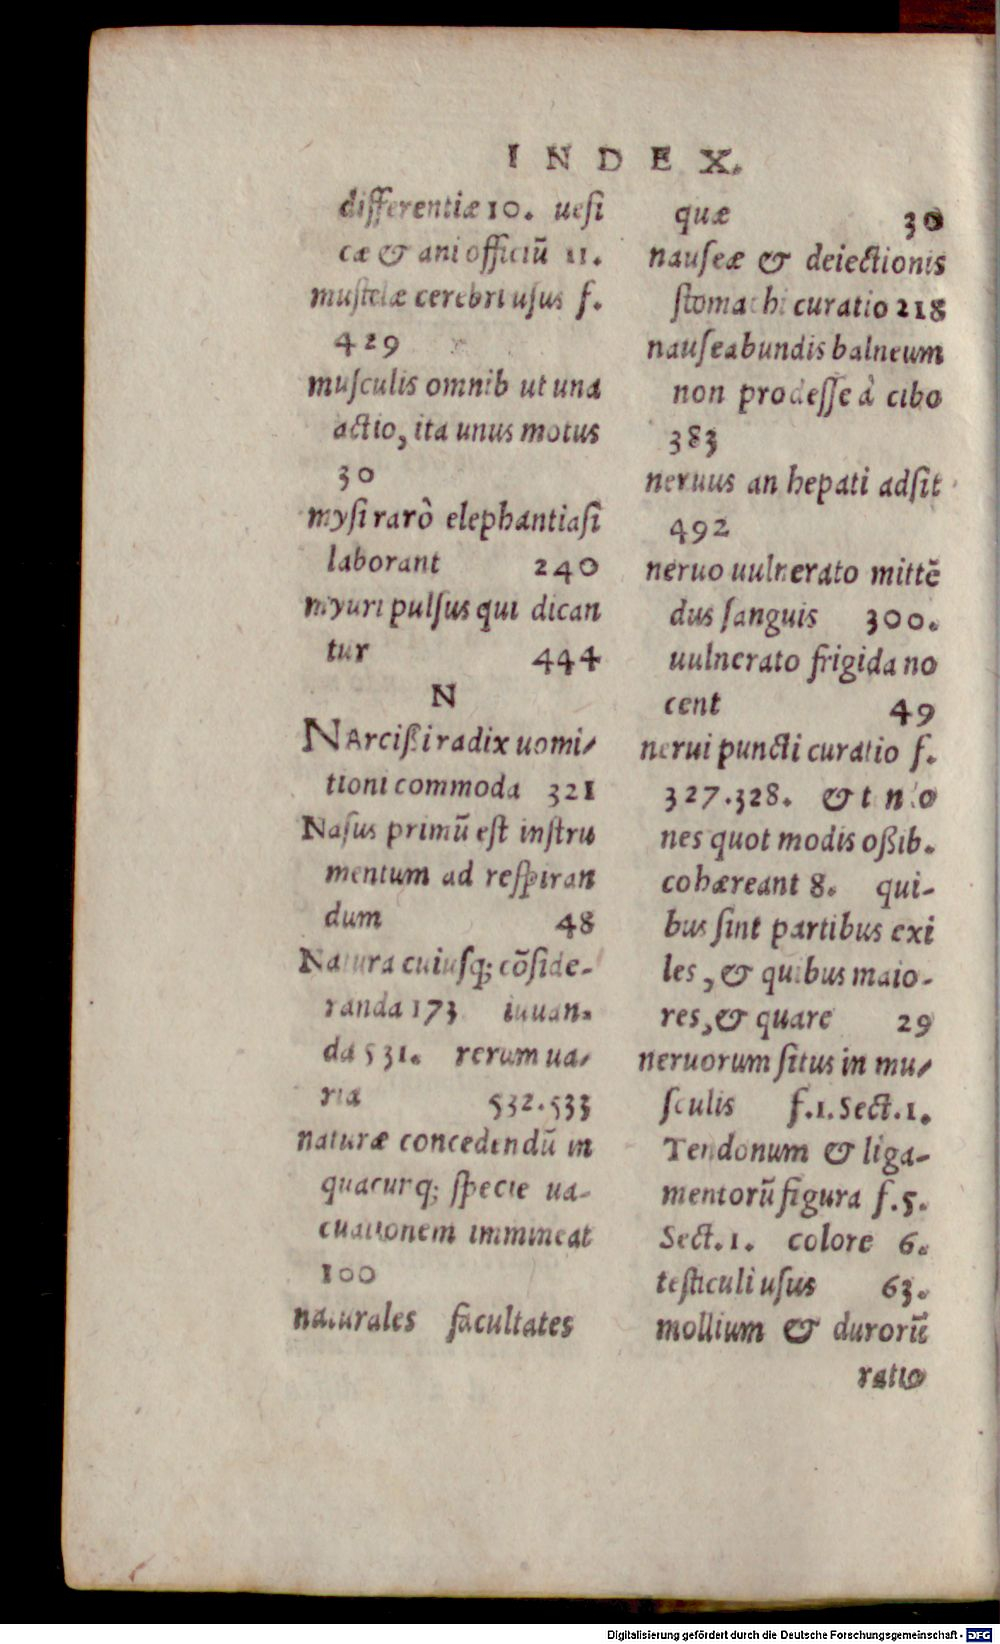 INDEX.
differentiæ 10. uesi
cæ & ani officiũ 11.
mustelæ cerebri usus f.
429
musculis omnib ut una
actio, ita unus motus
30
mysi rarò elephantiasi
laborant 240
myuri pulsus qui dican
tur 444
N
NArcißi radix uomi-
tioni commoda 321
Nasus primũ est instru
mentum ad respiran
dum 48
Natura cuiusq; cõside-
randa 173 iuuan-
da 531. rerum ua-
ria 532.533
naturæ concedendũ in
quacunq; specie ua-
cuationem immineat
100
naturales facultates
quæ 30
nauseæ & deiectionis
stomachi curatio 218
nauseabundis balneum
non prodesse à cibo
383
neruus an hepati adsit
492
neruo uulnerato mittẽ
dus sanguis 300.
uulnerato frigida no
cent 49
nerui puncti curatio f.
327.328. &
nes quot modis oßib.
cohæreant 8. qui-
bus sint partibus exi
les, & quibus maio-
res, & quare 29
neruorum situs in mu-
sculis f.1.Sect.1.
Tendonum & liga-
mentorũ figura f.5.
Sect.1. colore 6.
testiculi usus 63.
mollium & durorũ
ratio
Digitalisierung gefördert durch die Deutsche Forschungsgemeinschaft - DFG